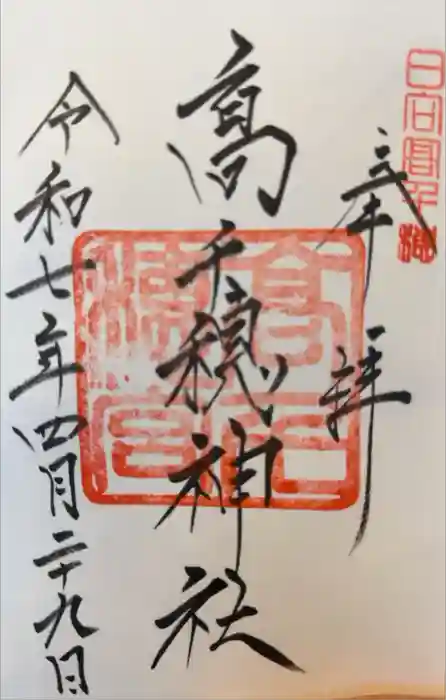 日向高千穂
奉拝
高千穂神社
高千
穂宮
令和七年四月二十九日